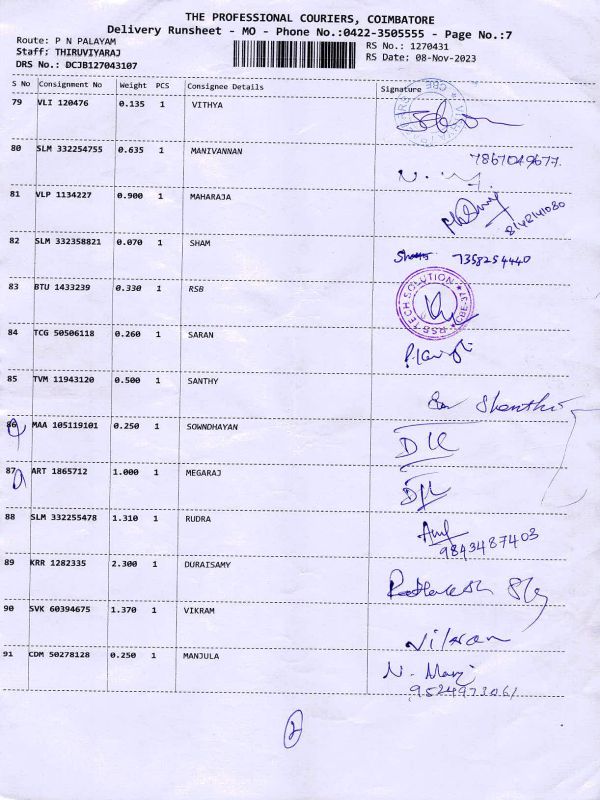 THE PROFESSIONAL COURIERS, COIMBATORE
Delivery Runsheet - MO - Phone No.:0422-3505555 - Page No.:7
Route: P N PALAYAM
Staff: THIRUVIYARAJ
DRS No.: DCJB127043107
RS No.: 1270431
RS Date: 08-Nov-2023
S No Consignment No Weight PCS Consignee Details Signature
79 VLI 120476 0.135 1 VITHYA
80 SLM 332254755 0.635 1 MANIVANNAN
7867049677.
81 VLP 1134227 0.900 1 MAHARAJA
82 SLM 332358821 0.070 1 SHAM 7358254440
83 BTU 1433239 0.330 1 RSB
RSB TECH SOLUTION
84 TCG 50506118 0.260 1 SARAN
85 TVM 11943120 0.500 1 SANTHY
Shanthi
86 MAA 105119101 0.250 1 SOWNDHAYAN
87 ART 1865712 1.000 1 MEGARAJ
88 SLM 332255478 1.310 1 RUDRA
9843487403
89 KRR 1282335 2.300 1 DURAISAMY
90 SVK 60394675 1.370 1 VIKRAM
Vikram
91 CDM 50278128 0.250 1 MANJULA
N. Manj
9524973061
2